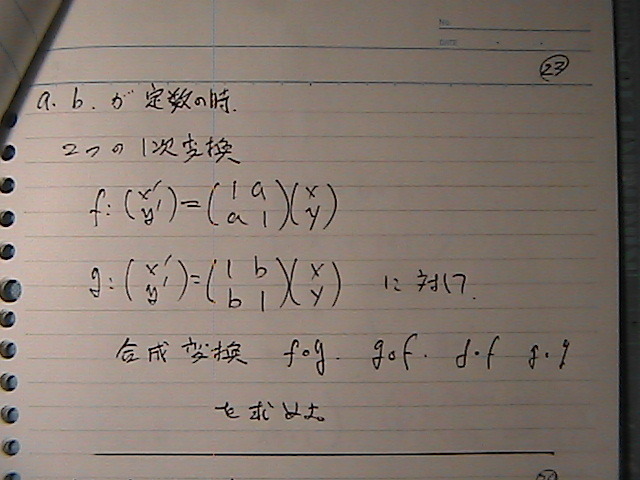 No.
DATE
23
a. b. が 定数の時.
2つの1次変換
f:(x' y')=(1 a a 1)(x y)
g:(x' y')=(1 b b 1)(x y) に対して.
合成変換 f∘g. g∘f. f∘f g∘g
を求めよ。